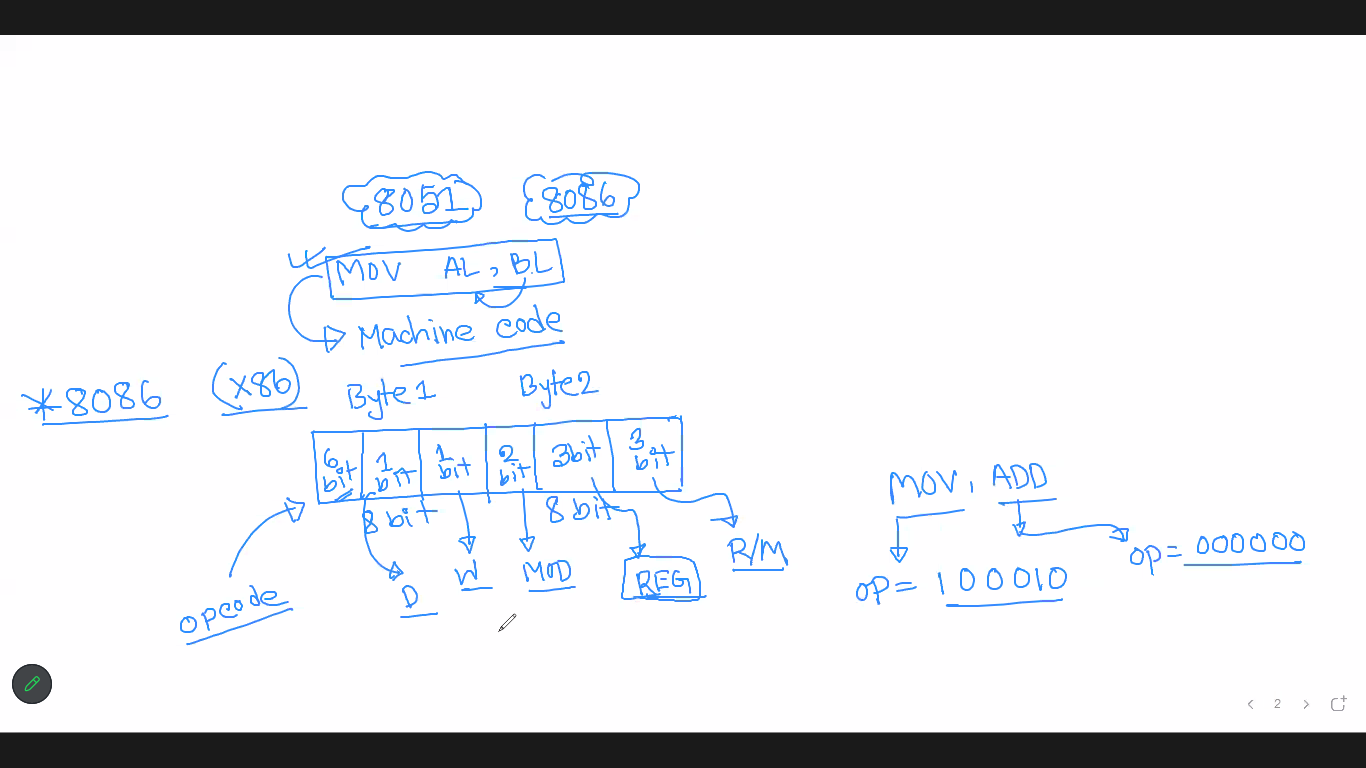 8051 8086
MOV AL, BL
Machine code
*8086 (x86) Byte1 Byte2
6 bit 1 bit 1 bit 2 bit 3bit 3 bit
8 bit 8 bit
opcode D W MOD REG R/M
MOV, ADD
op= 100010 op= 000000
2